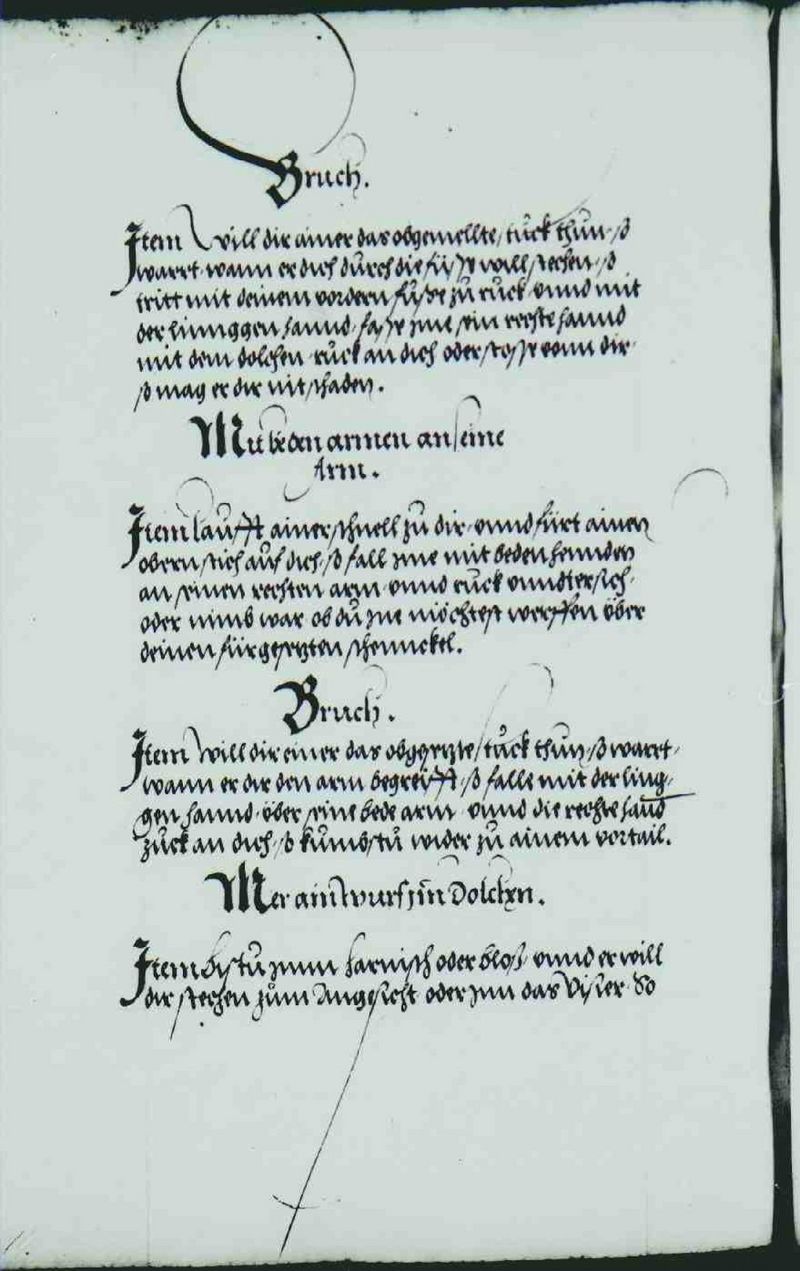 Bruch.
Item Will dir ainer das obgemellte stuck thun, so
warrt wann er dich durch die füsse will stechen, so
tritt mit deinem vordern fusse zu ruck, vnnd mit
der linnggen hannd, fasse jme sein rechte hannd
mit dem dolchen ruck an dich oder stosse vonn dir,
so mag er dir nit schaden.
Mit beden armen an seine
Arm.
Item laufft ainer schnell zu dir, vnnd fürt ainen
obern stich auf dich, so fall jme mit beden hennden
an seinen rechten arm, vnnd ruck vnndtersich,
oder nimb war ob du jne möchtest werffen über
deinen fürgesetzten schennckel.
Bruch.
Item will dir einer das obgesetzte stuck thun, so warrt,
wann er dir den arm begreifft, so falle mit der ling,
gen hannd, über seine bede arm, vnnd die rechte hand
zuck an dich, so kumbstu wider zu ainem vortail.
Mer ain wurf jn Dolchen.
Item bistu jnnn harnisch oder bloß, vnnd er will
dir stechen zum Angesicht oder jnn das Visier, So